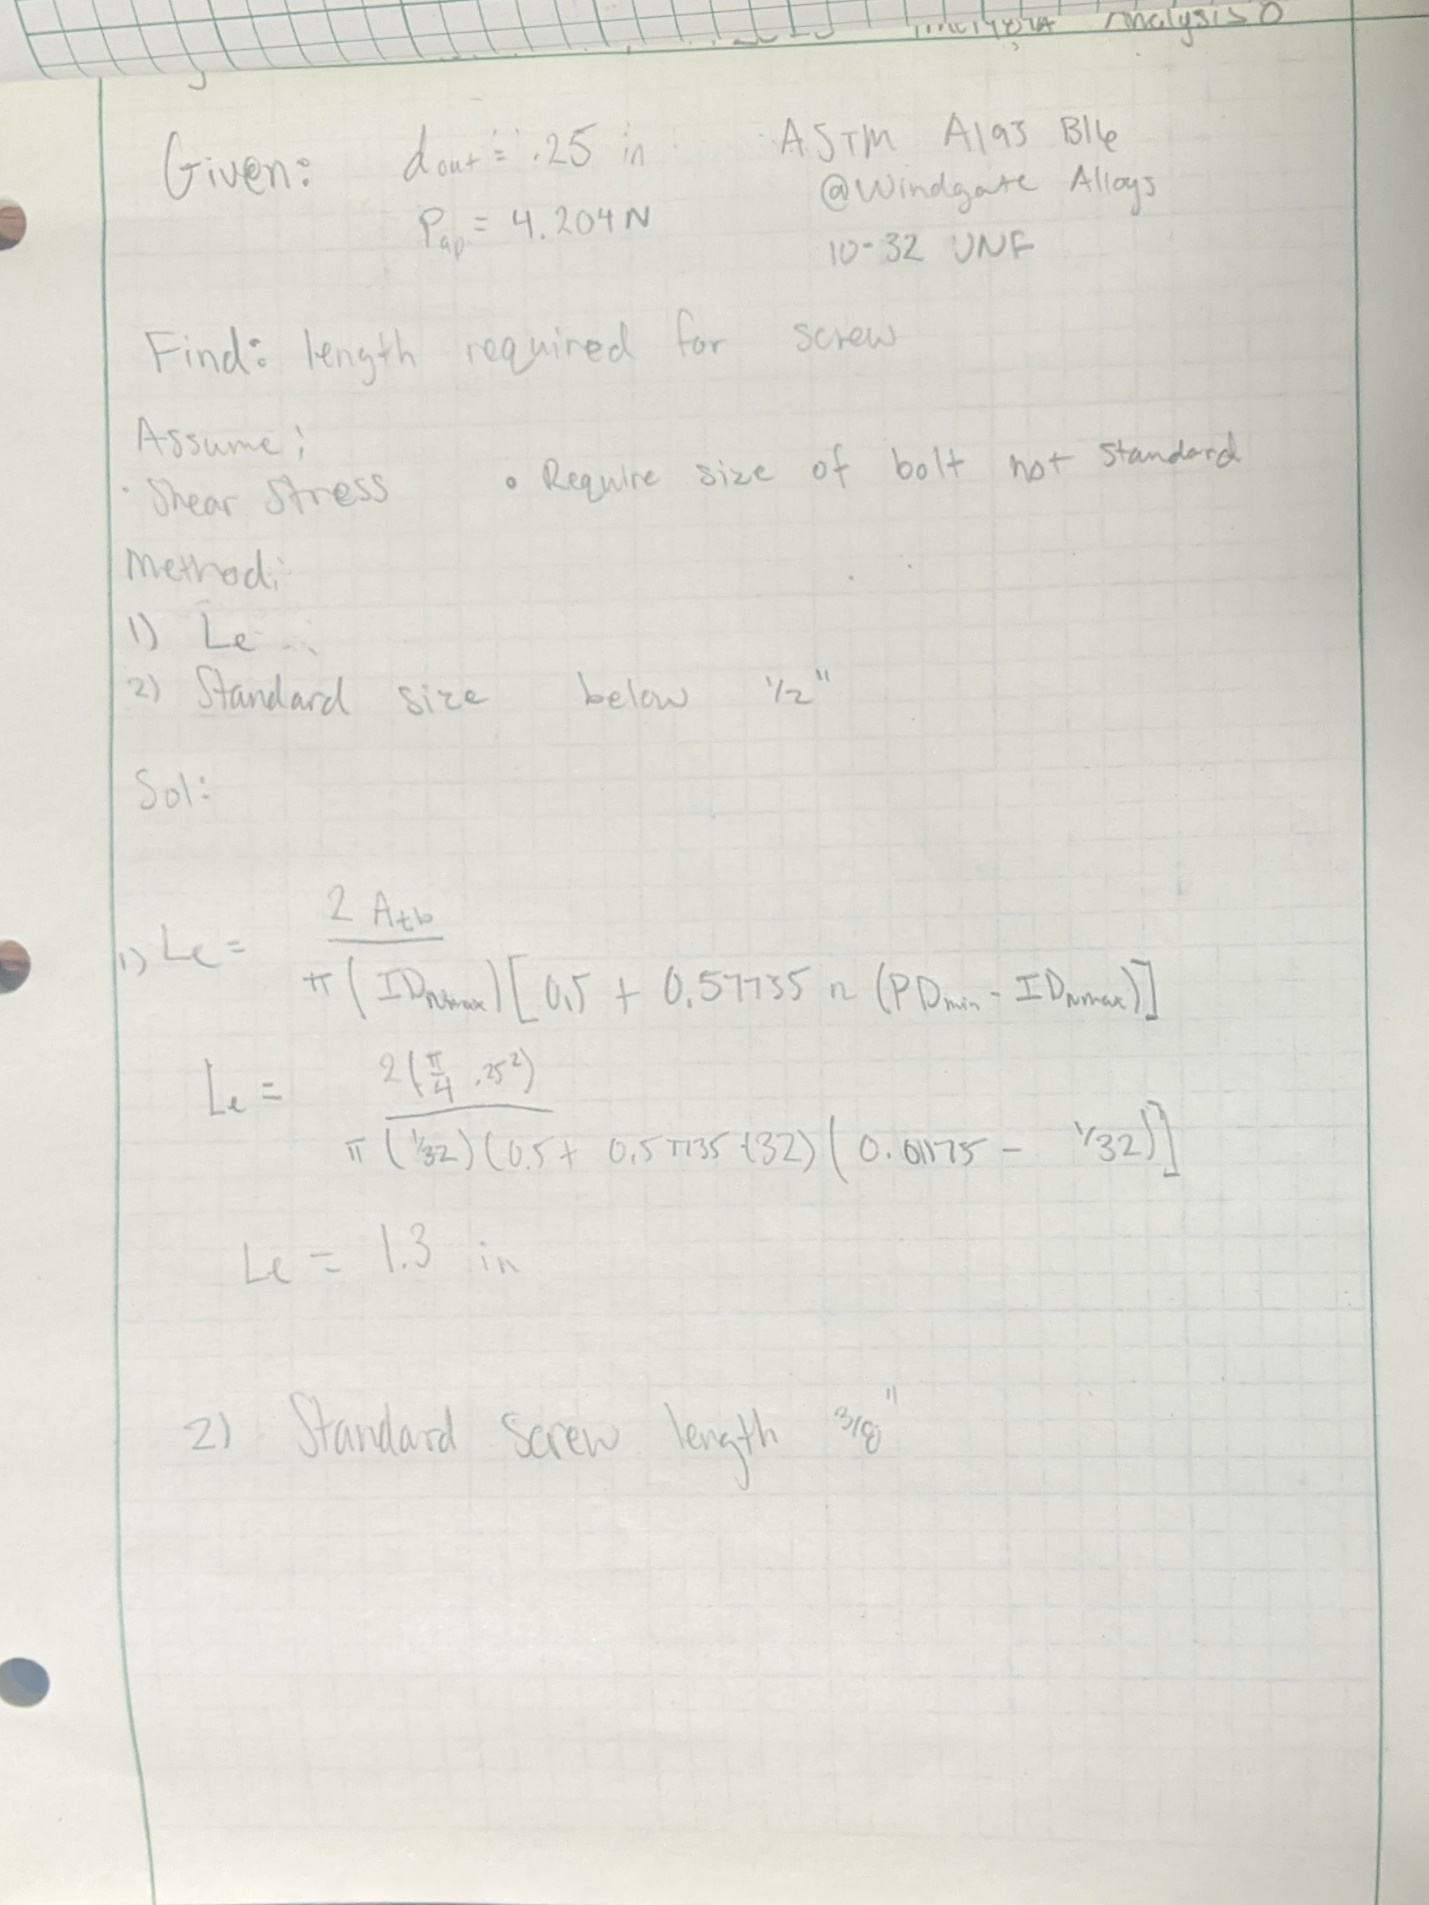 Analysis
Given: dout = .25 in ASTM A193 B16
@Windgate Alloys
Pap = 4.204N
10-32 UNF
Find: length required for screw
Assume:
· Shear Stress • Require size of bolt not standard
Method:
1) Le
2) Standard size below 1/2"
Sol:
1) Le = 2 Atb / π(IDNmax)[0.5 + 0.57735 n (PDmin - IDNmax)]
Le = 2(π/4 .25²) / π(1/32)(0.5 + 0.57735(32)(0.01175 - 1/32)]
Le = 1.3 in
2) Standard screw length 3/8"